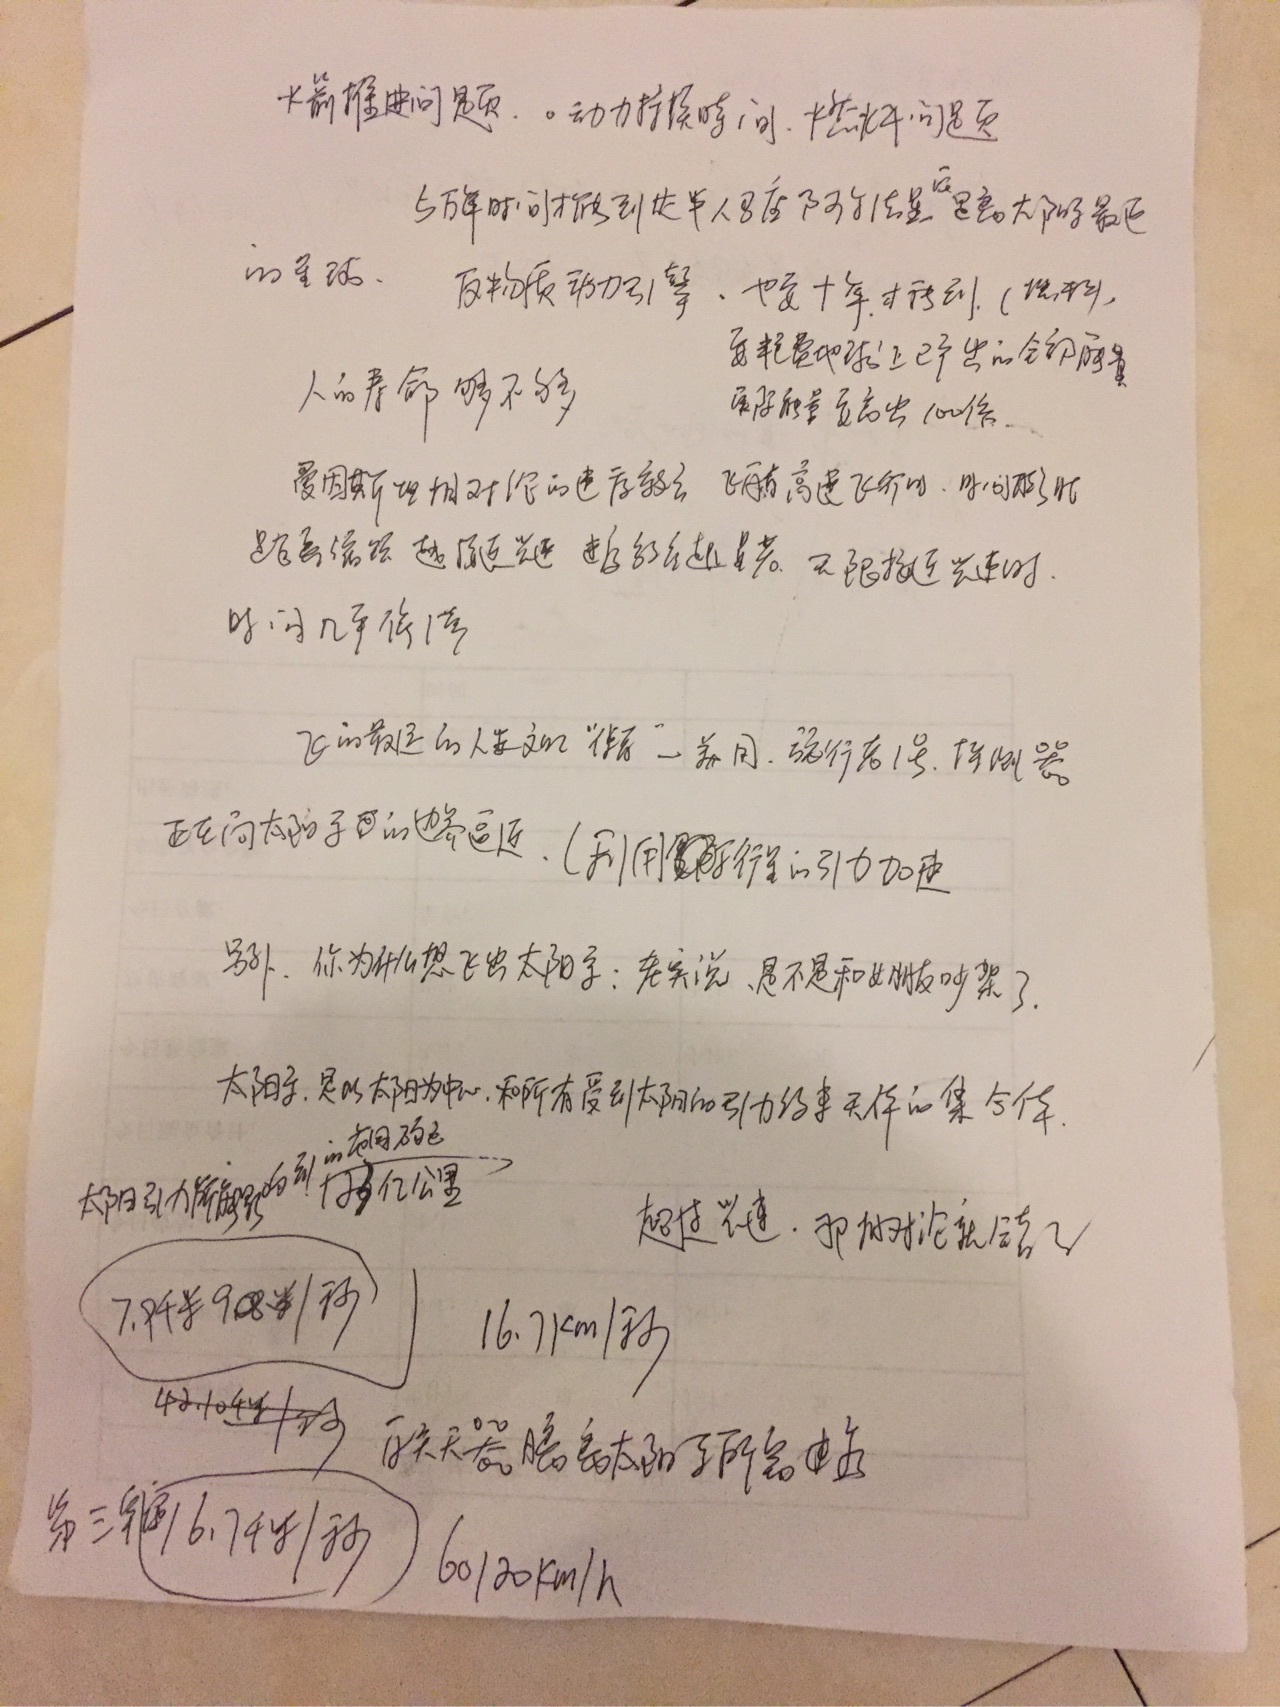 火箭推进问题. 。动力持续时间. 燃料问题
5万年时间才能到达半人马座阿尔法星 是离太阳系最近
的星球. 反物质动力引擎. 也要十年才能到. (燃料,
要耗费地球上已产出的全部能量
能量要高出100倍.
人的寿命够不够
爱因斯坦相对论的速度效应 飞船高速飞行时. 时间
越接近光速 速度效应越显著. 无限接近光速时.
时间几乎停滞
飞的最远的人类文明"信使" — 美国. 旅行者1号. 探测器
正在向太阳系的边界逼近. (利用行星的引力加速
另外. 你为什么想飞出太阳系: 老实说、是不是和女朋友吵架了.
太阳系. 是以太阳为中心. 和所有受到太阳的引力约束天体的集合体.
的范围
太阳引力能影响到 亿公里
超过光速. 那相对论就
7.9千米 米/秒
16.7km/秒
42.10千米/秒
航天器脱离太阳系所需速度
第三宇宙 16.7千米/秒
60120km/h